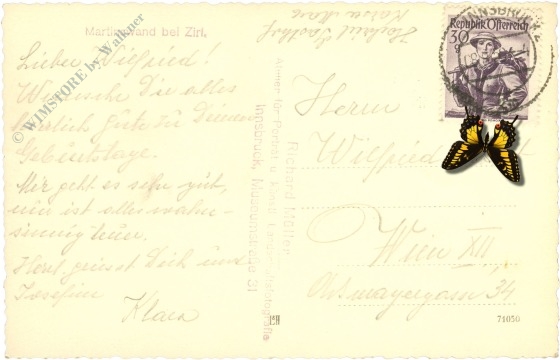 Martinswand bei Zirl.
Lieber Wilfried!
Wünsche Dir alles
herzlich gute zu Deinem
Geburtstage.
Mir geht es sehr gut,
nur ist alles wahn-
sinnig teuer.
Horst grüsst Dich und
Josefine
Klara
© WIMSTORE by Walkner
Richard Müller
Atelier für Porträt u. künstl. Landschaftsfotografie
Innsbruck, Museumstraße 31
INNSBRUCK 2
Republik Österreich
30
g
Herrn
Wilfried
Wien XII
34
71050